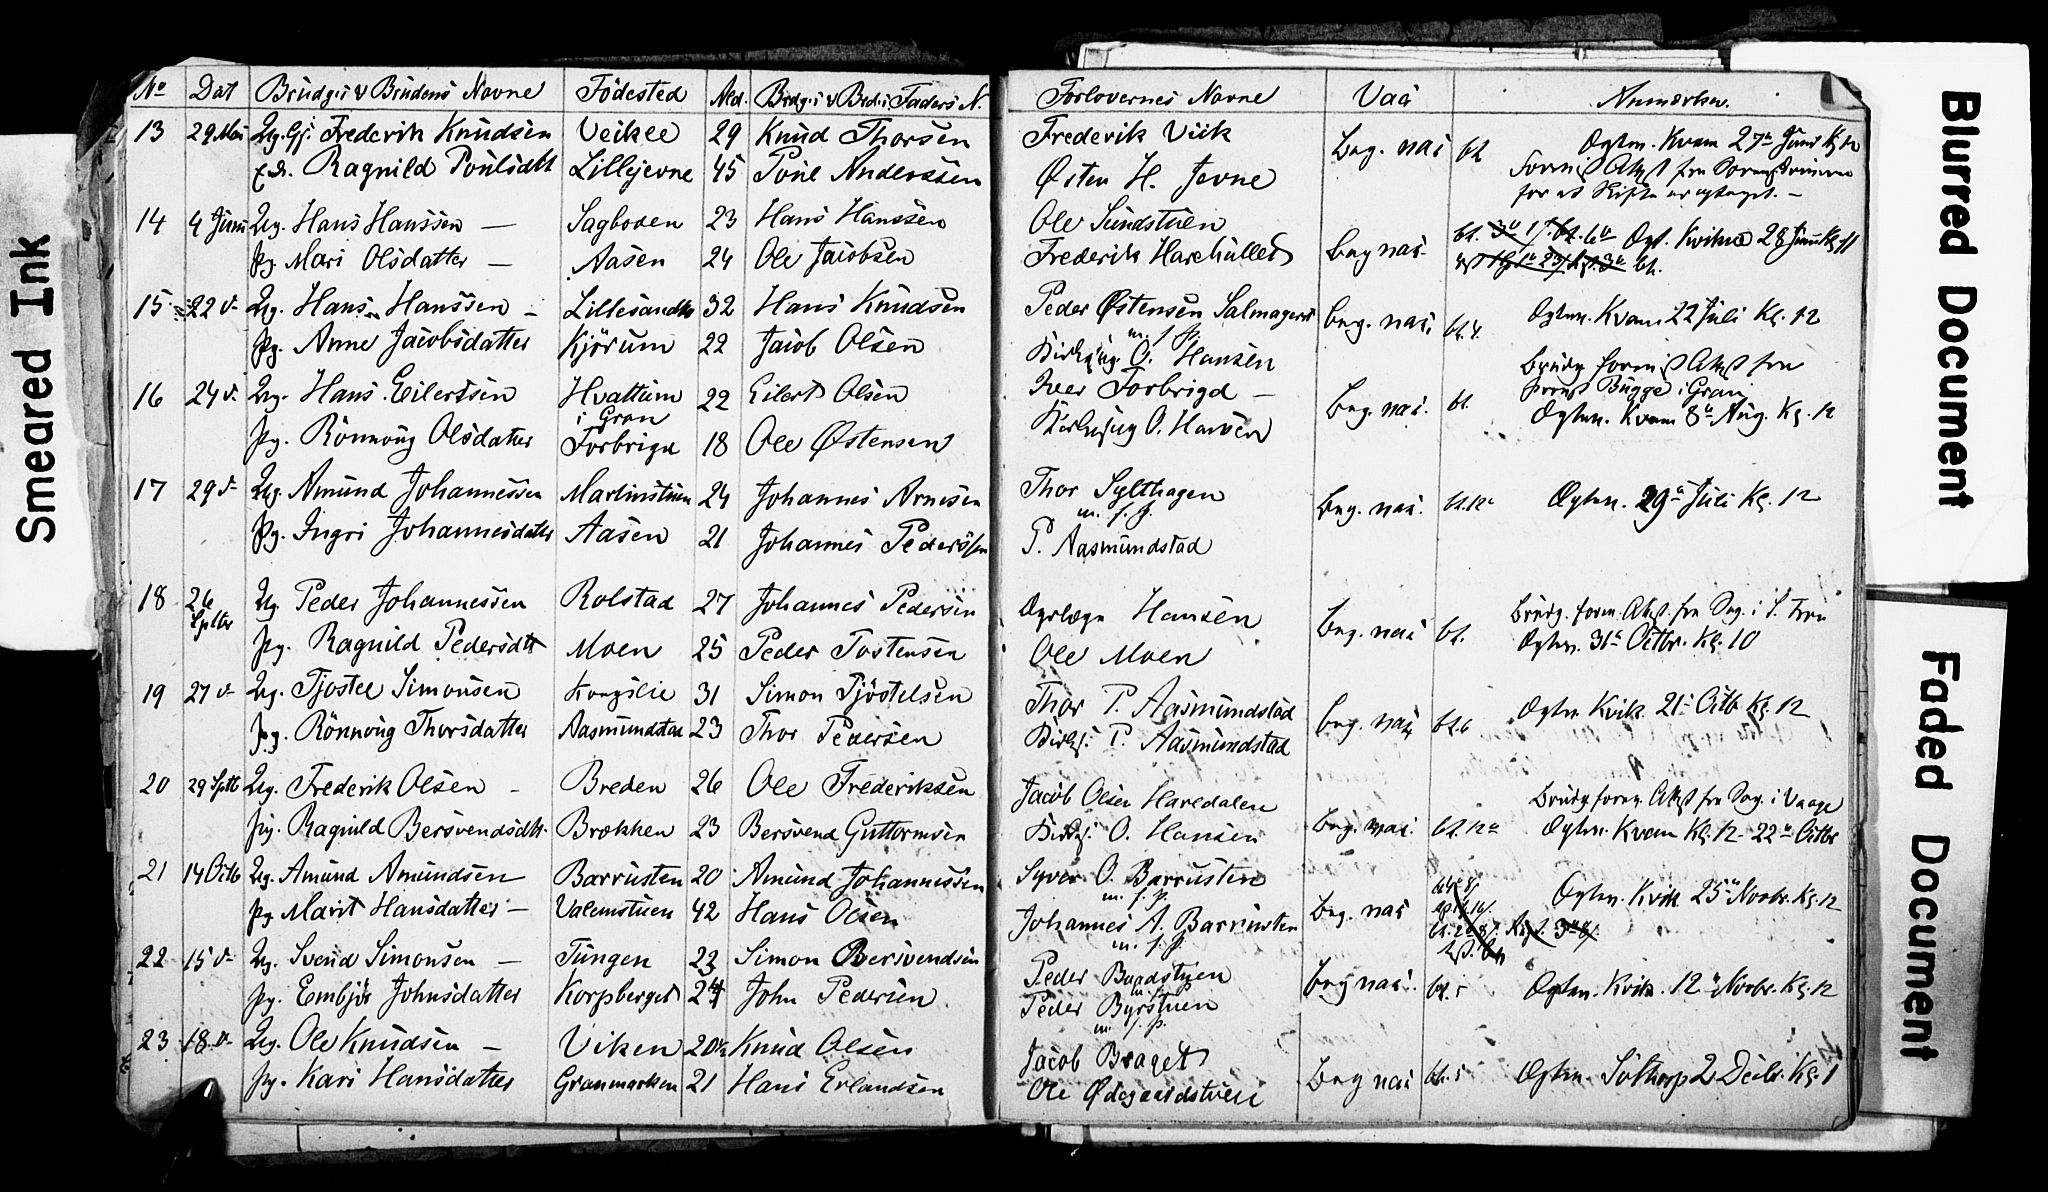 Smeared Ink
Blurred Document
Faded Document
No Dat Brudg:s & Brudens Navne Födested Ald. Brdg:s & Brd:s Faders N. Forlovernes Navne Vaã Anmærkn.
13 29 Mai Ug. Gj. Frederik Knudsen Veikle 29 Knud Thorsen Frederik Viik Beg. nat. bt. Ægtev. Kvam 27de Juni Kl. 12
E.d. Ragnild Poulsdtt Lillejevne 45 Poul Anderssen Østen H. Jevne
for at Skifte er optaget. —
14 4 Juni Ug. Hans Hanssen — Sagboden 23 Hans Hanssen Ole Sundstuen
Pg. Mari Olsdatter — Aasen 24 Ole Jacobsen Frederik Harehullet Beg nat. Kvikne 28 Juni Kl. 11
15 22 d. Ug. Hans Hanssen — Lillesandbo 32 Hans Knudsen Peder Østensen Salmagerst Beg. nat. bt. 4. Ægtev. Kvam 22 Juli Kl. 12
m. f. P.
Pg. Anne Jacobsdatter Kjörum 22 Jacob Olsen Kirkesng. O. Hansen
16 24 d. Ug. Hans Eilertsen Hvattum 22 Eilert Olsen Iver Forbrigd — Beg. nat. bt. Brudg. forevist Attest fra
i Gran Provst Bugge i Gran
Pg. Rönnoug Olsdatter Forbrigd 18 Ole Østensen Kirkesng O. Hansen Ægtev. Kvam 8de Aug. Kl. 12
17 29 d. Ug. Amund Johannessen Martinstuen 24 Johannes Arnesen Thor Sylthagen Beg. nat. bt. 12 Ægtev. 29de Juli Kl. 12
m. f. P.
Pg. Ingri Johannesdatter Aasen 21 Johannes Pederssen P. Aasmundstad
18 26 Septbr Ug. Peder Johannessen Rolstad 27 Johannes Pedersen Hansen Beg. nat. bt. Brudg. forev. Attst. fra Sog. i S. Fron
Pg. Ragnild Pedersdtt Moen 25 Peder Tostensen Ole Moen Ægtev. 31te Octbr. Kl. 10
19 27 d. Ug. Tjostel Simonsen Kongslie 31 Simon Tjöstelsen Thor P. Aasmundstad Beg. nat. bt. 6 Ægtev Kvik. 21 Octb Kl. 12
Pg. Rönnoug Thorsdatter Aasmundstad 23 Thor Pedersen Kirks. P. Aasmundstad
20 29 Septb Ug. Frederik Olsen — Breden 26 Ole Frederiksen Jacob Olsen Haredalen Beg. nat. bt. 12 Brudg forev. Attst fra Sog. i Vaage
Pig. Ragnild Bersvendsdtt. Brækken 23 Bersvend Guttormsen Kirks. O. Hansen Ægtev. Kvam Kl. 12 22de Octbr
21 14 Octb Ug. Amund Amundsen Barrusten 20 Amund Johannessen Syver O. Barrusten Ægtev. Kvik 25de Novbr. Kl. 12
m. f. P.
Pg. Marit Hansdatter — Valemstuen 42 Hans Olsen Johannes A. Barrusten Beg. nat
m. f. P.
22 15 d. Ug. Svend Simonsen — Tungen 23 Simon Bersvendsen Peder Baadstuen Beg nat. bt. 5 Ægtev. Kvik. 12te Novbr. Kl. 12
m. f. P.
Pg. Embjör Johnsdatter Korpberget 24 John Pedersen Peder Byrstuen
m. f. P.
23 18 d. Ug. Ole Knudsen — Viken 20½ Knud Olsen Jacob Braget Beg nat bt. 5 Ægtev. Sötorp 2 Decbr. Kl. 1
Pg. Kari Hansdatter Granmarken 21 Hans Erlandsen Ole Ødegaardstuen